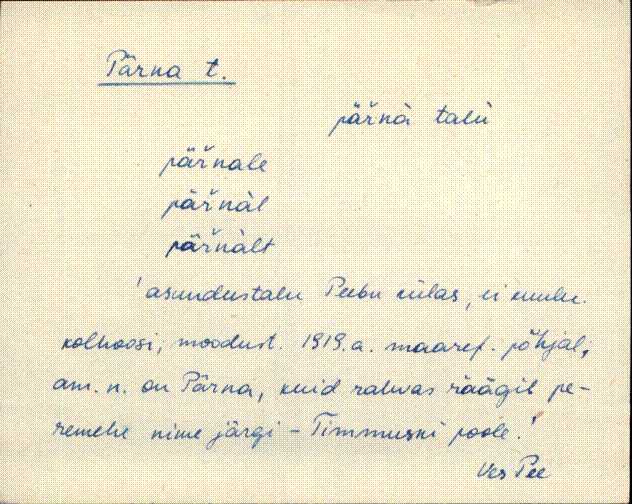 Pärna t.
päřnà talù
päřnale
päřnàl
päřnàlt
'asundustalu Peebu külas, ei kuulu
kolhoosi, moodust. 1919.a. maaref. põhjal;
am. n. on Pärna, kuid rahvas räägib pe-
remehe nime järgi - Timmuski poole.'
Ves Pee